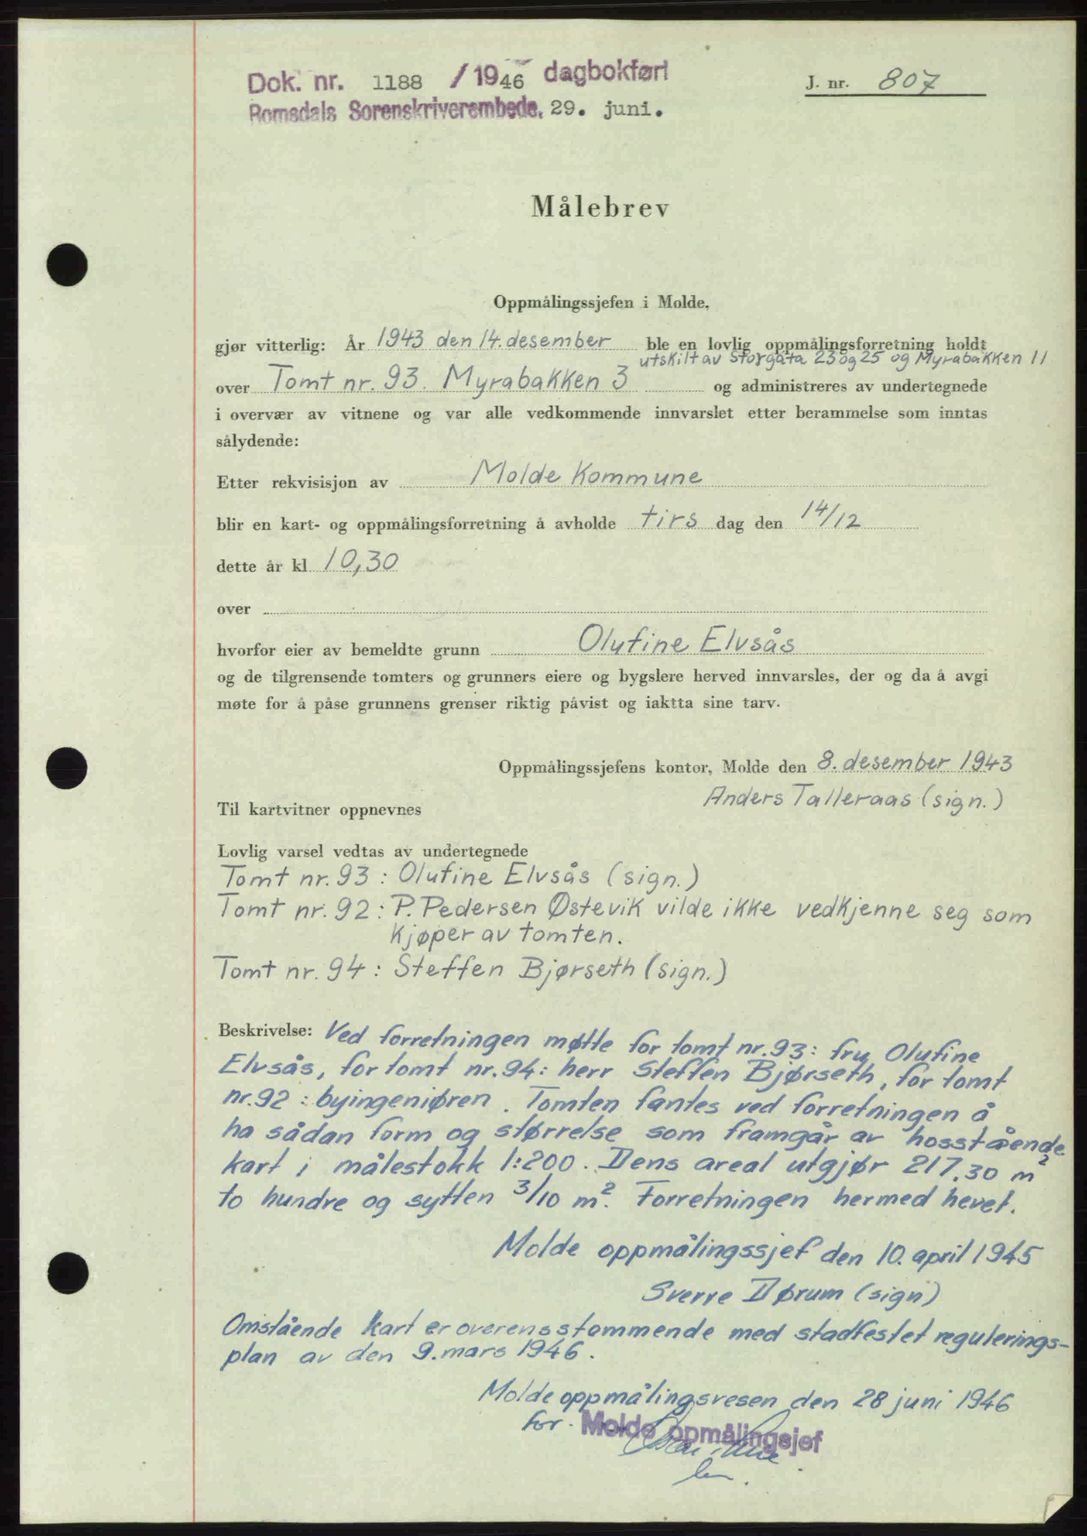 Dok. nr. 1188 /1946 dagbokført
J. nr. 807
Romsdals Sorenskriverembede, 29. juni.
Målebrev
Oppmålingssjefen i Molde,
gjør vitterlig: År 1943 den 14. desember ble en lovlig oppmålingsforretning holdt
utskilt av Storgata 23 og 25 og Myrabakken 11
over Tomt nr. 93. Myrabakken 3 og administreres av undertegnede
i overvær av vitnene og var alle vedkommende innvarslet etter berammelse som inntas
sålydende:
Etter rekvisisjon av Molde Kommune
blir en kart- og oppmålingsforretning å avholde tirs dag den 14/12
dette år kl 10,30
over
hvorfor eier av bemeldte grunn Olufine Elvsås
og de tilgrensende tomters og grunners eiere og bygslere herved innvarsles, der og da å avgi
møte for å påse grunnens grenser riktig påvist og iaktta sine tarv.
Oppmålingssjefens kontor, Molde den 8. desember 1943
Anders Talleraas (sign.)
Til kartvitner oppnevnes
Lovlig varsel vedtas av undertegnede
Tomt nr. 93 : Olufine Elvsås (sign.)
Tomt nr. 92 : P. Pedersen Østevik vilde ikke vedkjenne seg som
kjøper av tomten.
Tomt nr. 94 : Steffen Bjørseth (sign.)
Beskrivelse: Ved forretningen møtte for tomt nr. 93: fru Olufine
Elvsås, for tomt nr. 94: herr Steffen Bjørseth, for tomt
nr. 92 : byingeniøren. Tomten fantes ved forretningen å
ha sådan form og størrelse som framgår av hosstående
kart i målestokk 1:200. Dens areal utgjør 217,30 m²
to hundre og sytten 3/10 m². Forretningen hermed hevet.
Molde oppmålingssjef den 10. april 1945
Sverre Dørum (sign)
Omstående kart er overensstemmende med stadfestet regulerings-
plan av den 9. mars 1946.
Molde oppmålingsvesen den 28 juni 1946
for. Molde opmålingsjef